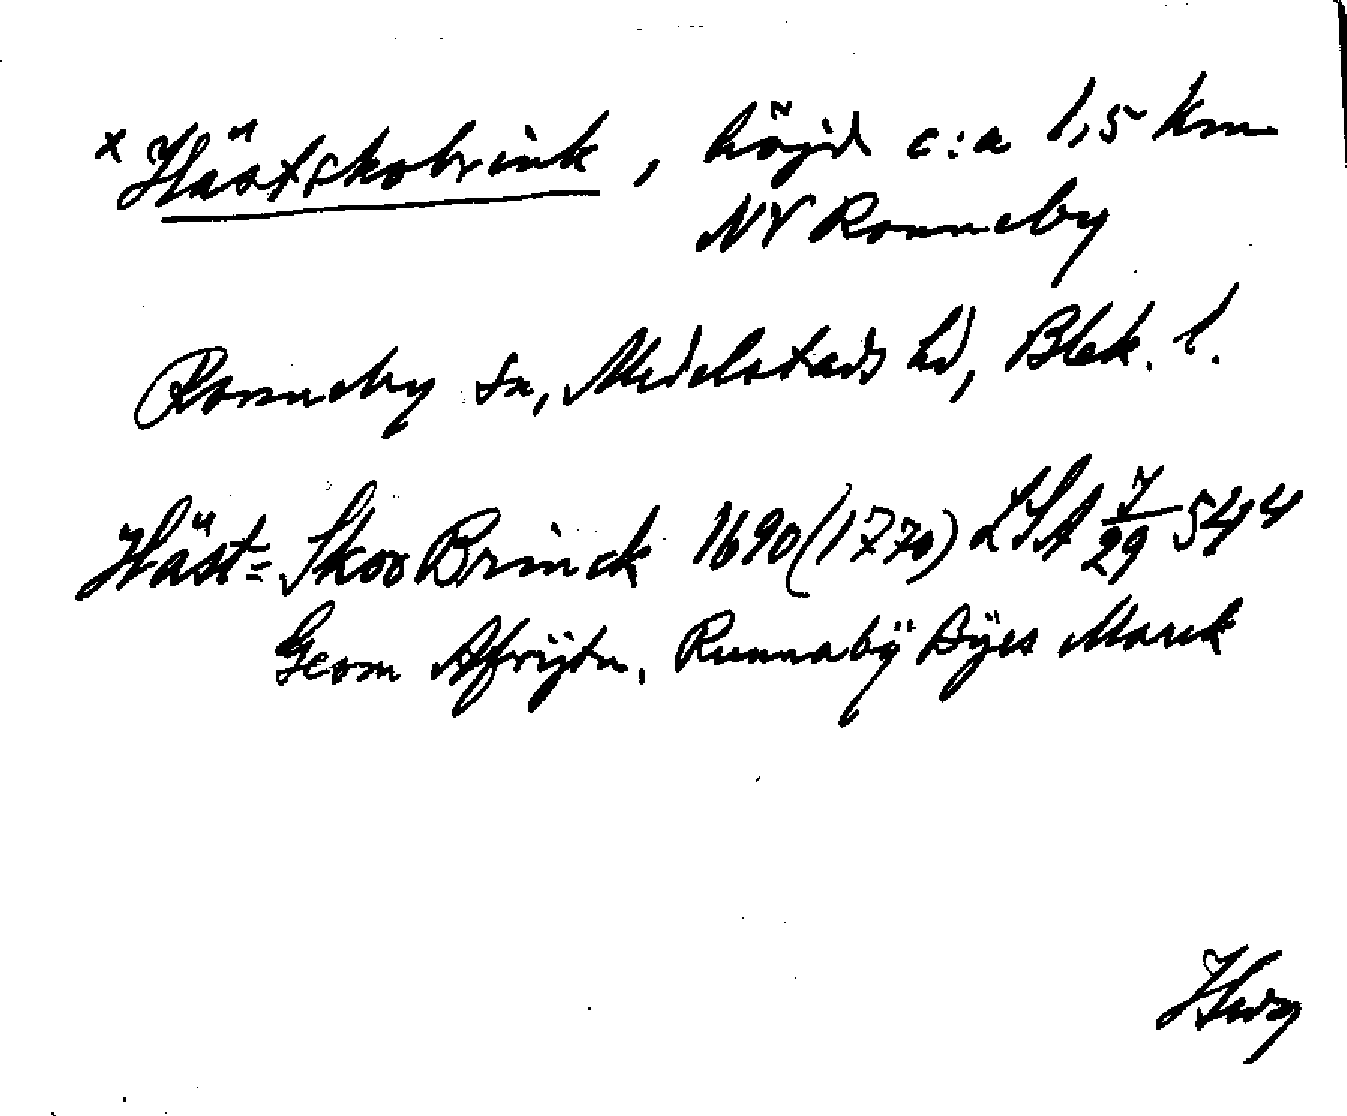 x Hästskobrink, höjd c:a 1,5 km
NV Ronneby
Ronneby sn, Medelstads hd, Blek. l.
Häst= Skoo Brinck 1690 (1770) LSA 7/29 544
Geom Afrijtn, Runnabÿ Bÿes Marck